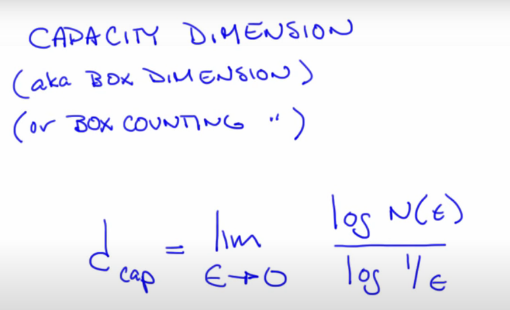 CAPACITY DIMENSION
(aka BOX DIMENSION)
(or BOX COUNTING ")
d_cap = lim_{ϵ→0} log N(ϵ) / log 1/ϵ